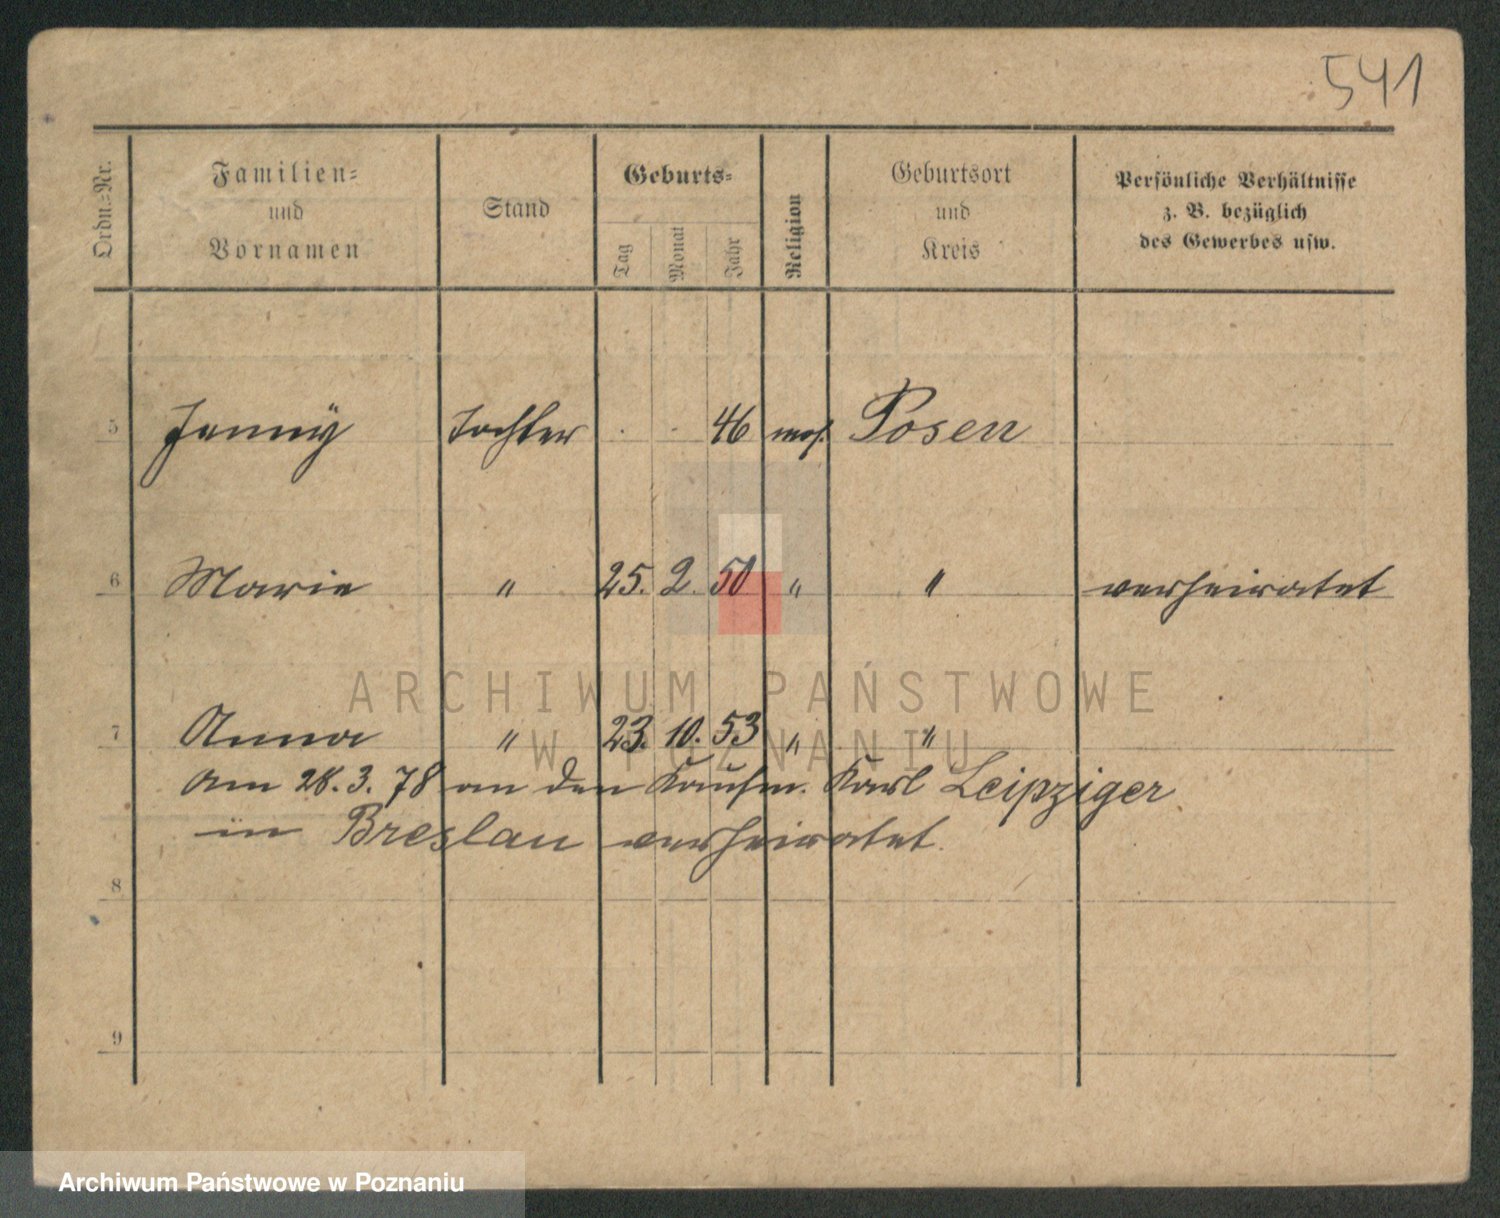 541
Ordn.-Nr.
Familien-
und
Vornamen
Stand
Geburts-
Tag
Monat
Jahr
Religion
Geburtsort
und
Kreis
Persönliche Verhältnisse
z. B. bezüglich
des Gewerbes usw.
5 Jenny Tochter . . 46 mos. Posen
6 Marie " 25. 2. 50 " " verheiratet
ARCHIWUM PAŃSTWOWE
W POZNANIU
7 Anna " 23. 10. 53 " "
Am 28. 3. 78 an den Kaufm. Karl Leipziger
in Breslau verheiratet.
8
9
Archiwum Państwowe w Poznaniu